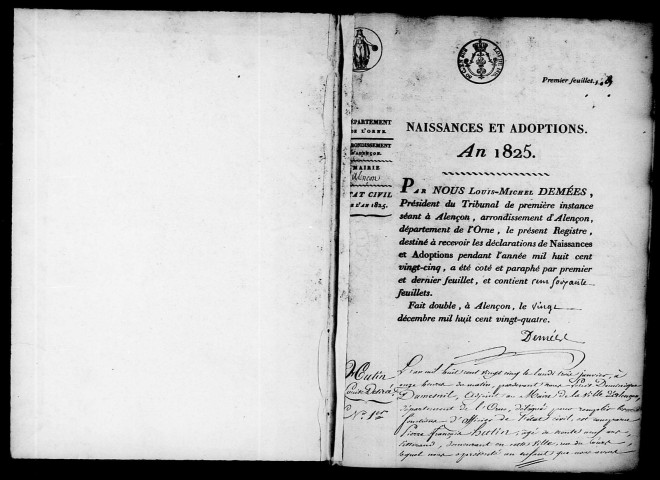 Premier feuillet.
DÉPARTEMENT
DE L'ORNE.
ARRONDISSEMENT
D'ALENÇON.
MAIRIE
d'Alençon
ÉTAT CIVIL
DE L'AN 1825.
NAISSANCES ET ADOPTIONS.
An 1825.
PAR NOUS LOUIS-MICHEL DEMÉES,
Président du Tribunal de première instance
séant à Alençon, arrondissement d'Alençon,
département de l'Orne, le présent Registre,
destiné à recevoir les déclarations de Naissances
et Adoptions pendant l'année mil huit cent
vingt-cinq, a été coté et paraphé par premier
et dernier feuillet, et contient cent soixante
feuillets.
Fait double, à Alençon, le vingt
décembre mil huit cent vingt-quatre.
Demées
Hutin
Louise Désirée
N.º 1er
L'an mil huit cent vingt cinq le lundi trois janvier, à
onze heures du matin, pardevant nous Dominique
Dumesnil, adjoint au Maire de la ville d'Alençon,
département de l'Orne, délégué pour remplir
fonctions d'officier de l'état civil, est comparu
Pierre François Hutin, âgé de trente neuf ans,
tisserand, demeurant en cette ville, rue
lequel nous a présenté un enfant que nous avons